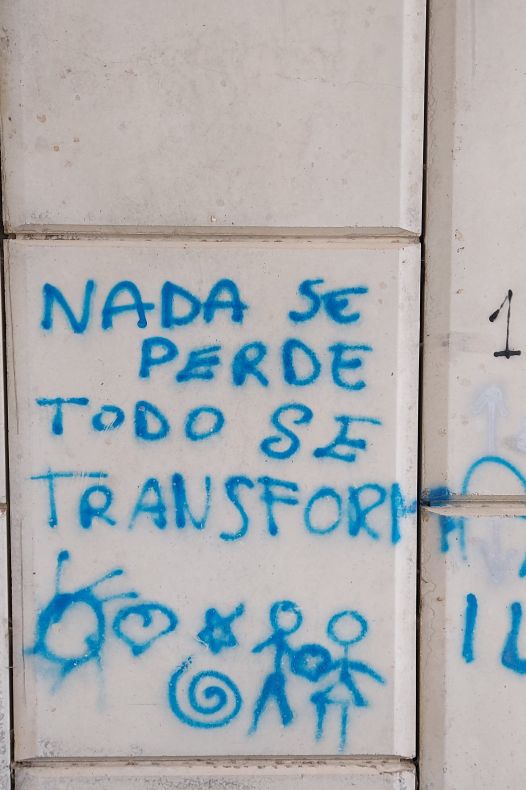 NADA SE
PERDE
TODO SE
TRANSFORMA
1